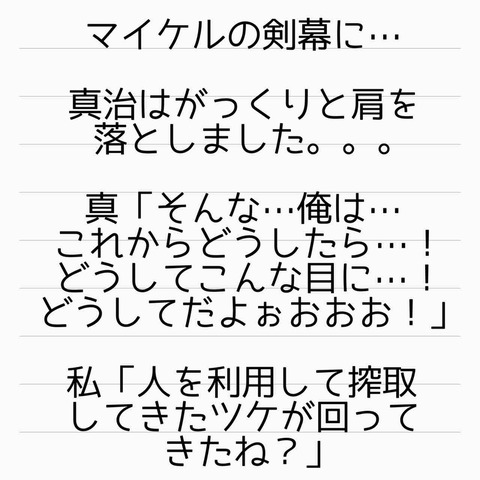 マイケルの剣幕に…
真治はがっくりと肩を
落としました。。。
真「そんな…俺は…
これからどうしたら…！
どうしてこんな目に…！
どうしてだよぉおおお！」
私「人を利用して搾取
してきたツケが回って
きたね？」